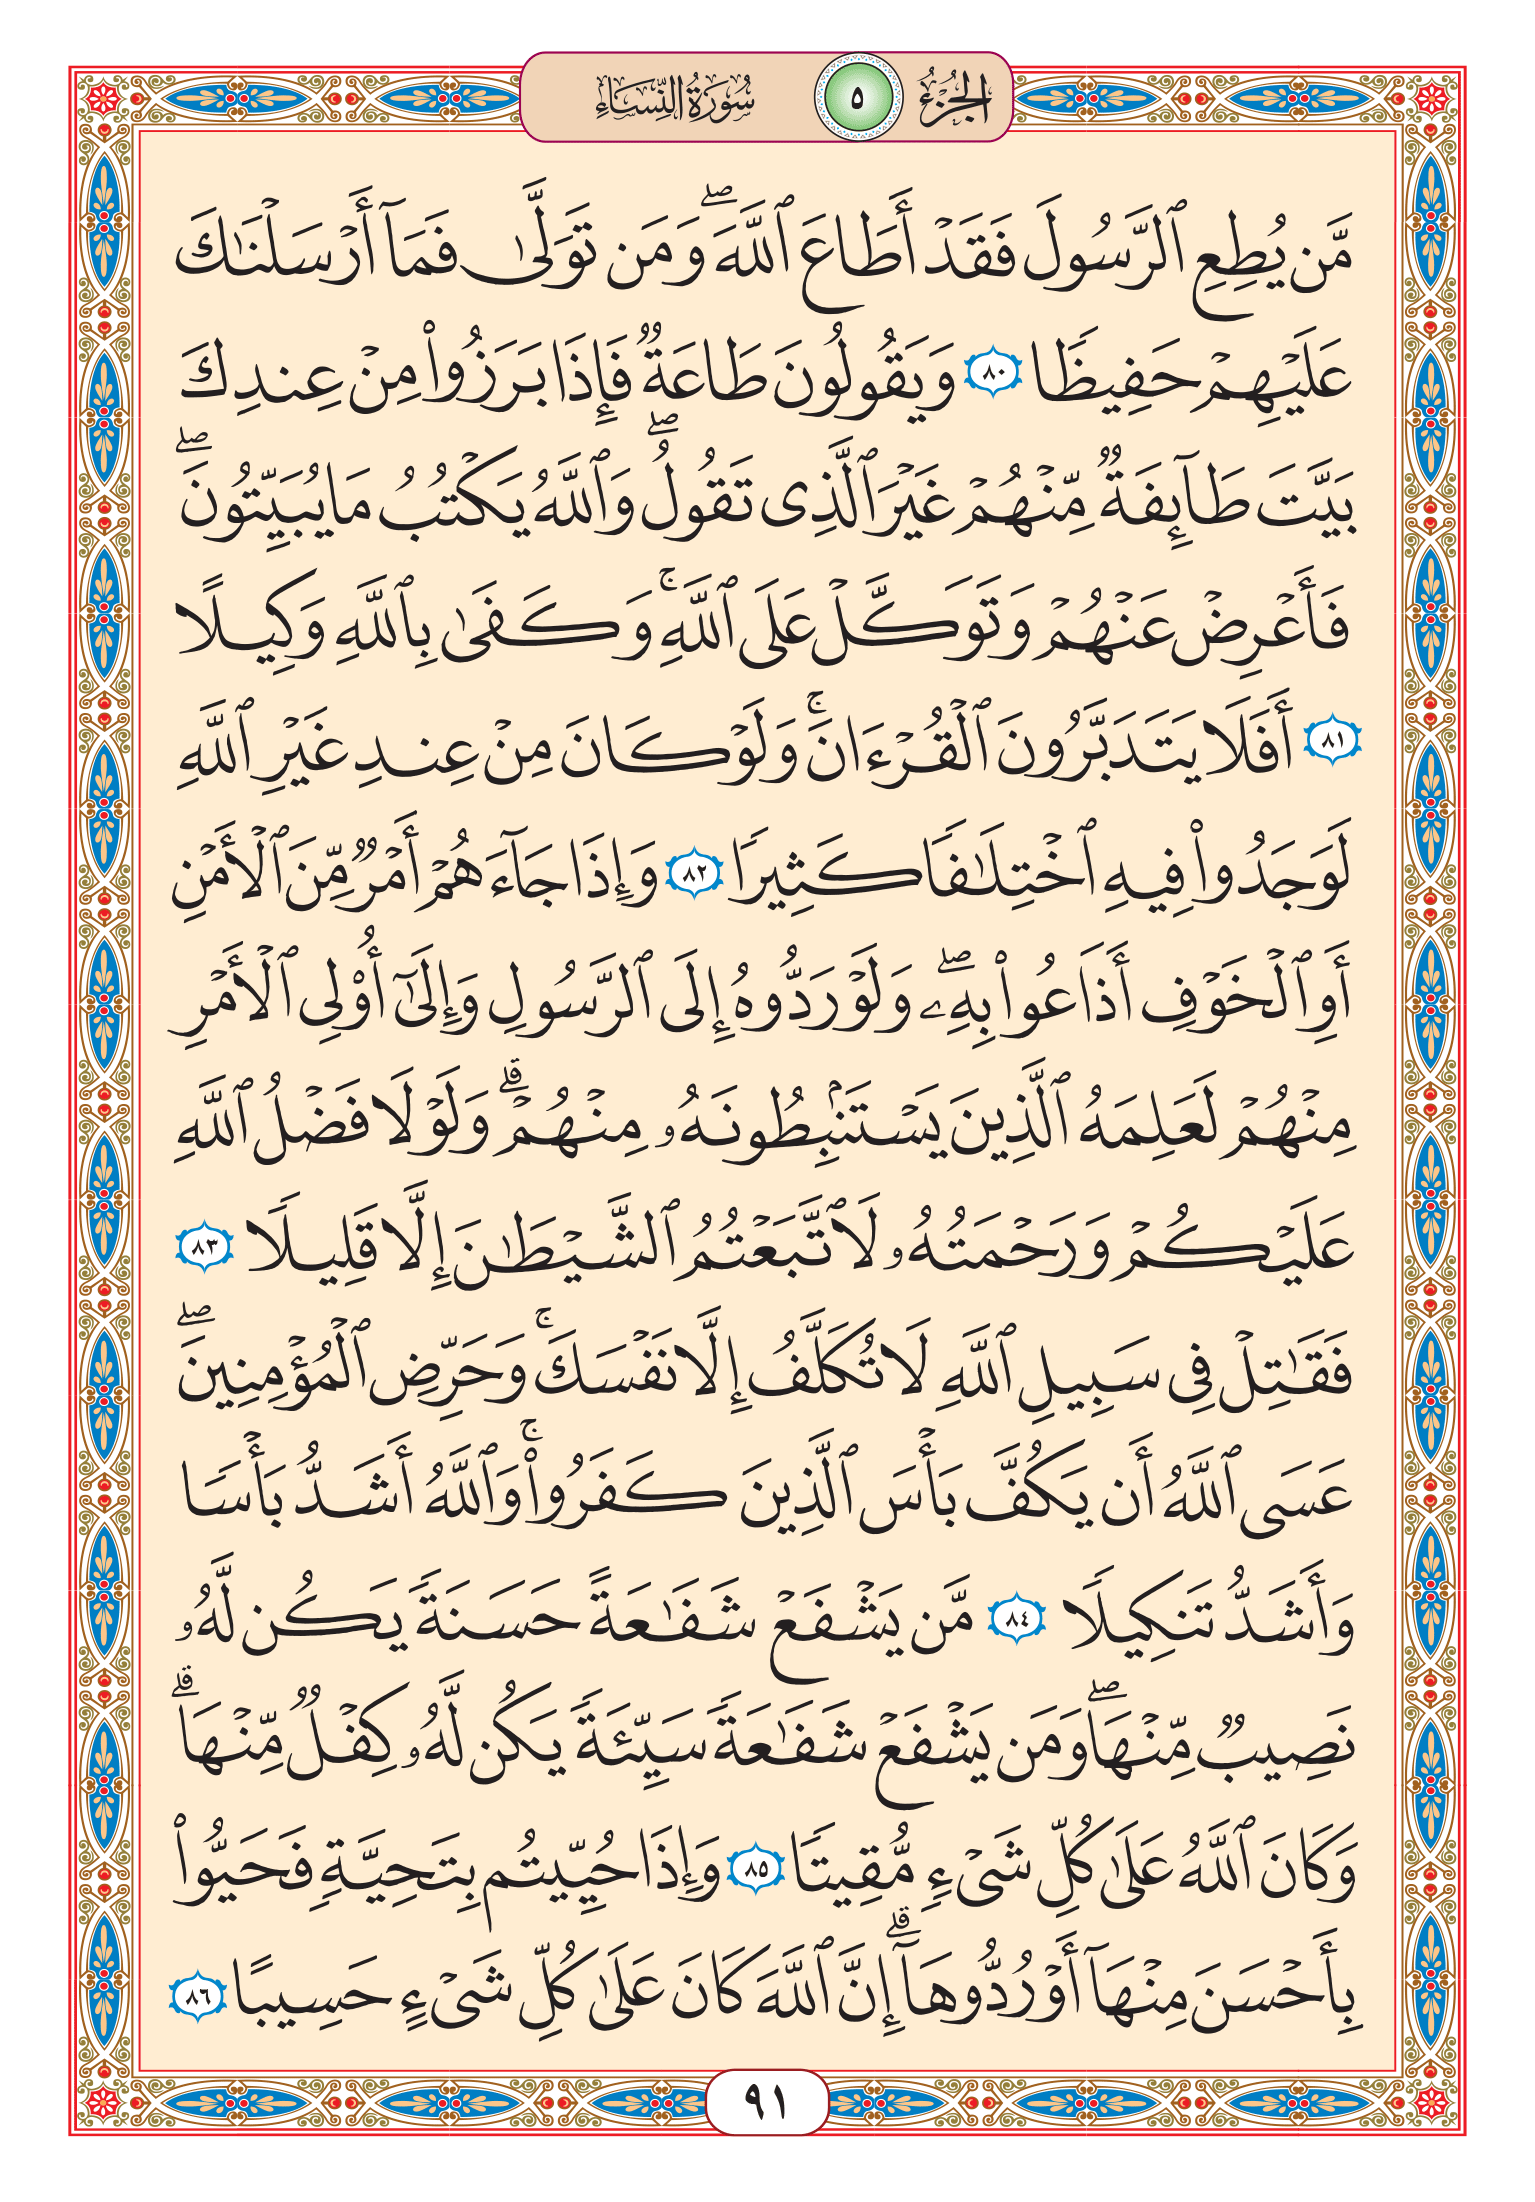 الجزء ٥ سورة النساء
مَّن يُطِعِ ٱلرَّسُولَ فَقَدۡ أَطَاعَ ٱللَّهَۖ وَمَن تَوَلَّىٰ فَمَآ أَرۡسَلۡنَٰكَ
عَلَيۡهِمۡ حَفِيظٗا ٨٠ وَيَقُولُونَ طَاعَةٞ فَإِذَا بَرَزُواْ مِنۡ عِندِكَ
بَيَّتَ طَآئِفَةٞ مِّنۡهُمۡ غَيۡرَ ٱلَّذِي تَقُولُۖ وَٱللَّهُ يَكۡتُبُ مَا يُبَيِّتُونَۖ
فَأَعۡرِضۡ عَنۡهُمۡ وَتَوَكَّلۡ عَلَى ٱللَّهِۚ وَكَفَىٰ بِٱللَّهِ وَكِيلًا
٨١ أَفَلَا يَتَدَبَّرُونَ ٱلۡقُرۡءَانَۚ وَلَوۡ كَانَ مِنۡ عِندِ غَيۡرِ ٱللَّهِ
لَوَجَدُواْ فِيهِ ٱخۡتِلَٰفٗا كَثِيرٗا ٨٢ وَإِذَا جَآءَهُمۡ أَمۡرٞ مِّنَ ٱلۡأَمۡنِ
أَوِ ٱلۡخَوۡفِ أَذَاعُواْ بِهِۦۖ وَلَوۡ رَدُّوهُ إِلَى ٱلرَّسُولِ وَإِلَىٰٓ أُوْلِي ٱلۡأَمۡرِ
مِنۡهُمۡ لَعَلِمَهُ ٱلَّذِينَ يَسۡتَنۢبِطُونَهُۥ مِنۡهُمۡۗ وَلَوۡلَا فَضۡلُ ٱللَّهِ
عَلَيۡكُمۡ وَرَحۡمَتُهُۥ لَٱتَّبَعۡتُمُ ٱلشَّيۡطَٰنَ إِلَّا قَلِيلٗا ٨٣
فَقَٰتِلۡ فِي سَبِيلِ ٱللَّهِ لَا تُكَلَّفُ إِلَّا نَفۡسَكَۚ وَحَرِّضِ ٱلۡمُؤۡمِنِينَۖ
عَسَى ٱللَّهُ أَن يَكُفَّ بَأۡسَ ٱلَّذِينَ كَفَرُواْۚ وَٱللَّهُ أَشَدُّ بَأۡسٗا
وَأَشَدُّ تَنكِيلٗا ٨٤ مَّن يَشۡفَعۡ شَفَٰعَةً حَسَنَةٗ يَكُن لَّهُۥ
نَصِيبٞ مِّنۡهَاۖ وَمَن يَشۡفَعۡ شَفَٰعَةٗ سَيِّئَةٗ يَكُن لَّهُۥ كِفۡلٞ مِّنۡهَاۗ
وَكَانَ ٱللَّهُ عَلَىٰ كُلِّ شَيۡءٖ مُّقِيتٗا ٨٥ وَإِذَا حُيِّيتُم بِتَحِيَّةٖ فَحَيُّواْ
بِأَحۡسَنَ مِنۡهَآ أَوۡ رُدُّوهَآۗ إِنَّ ٱللَّهَ كَانَ عَلَىٰ كُلِّ شَيۡءٍ حَسِيبًا ٨٦
٩١